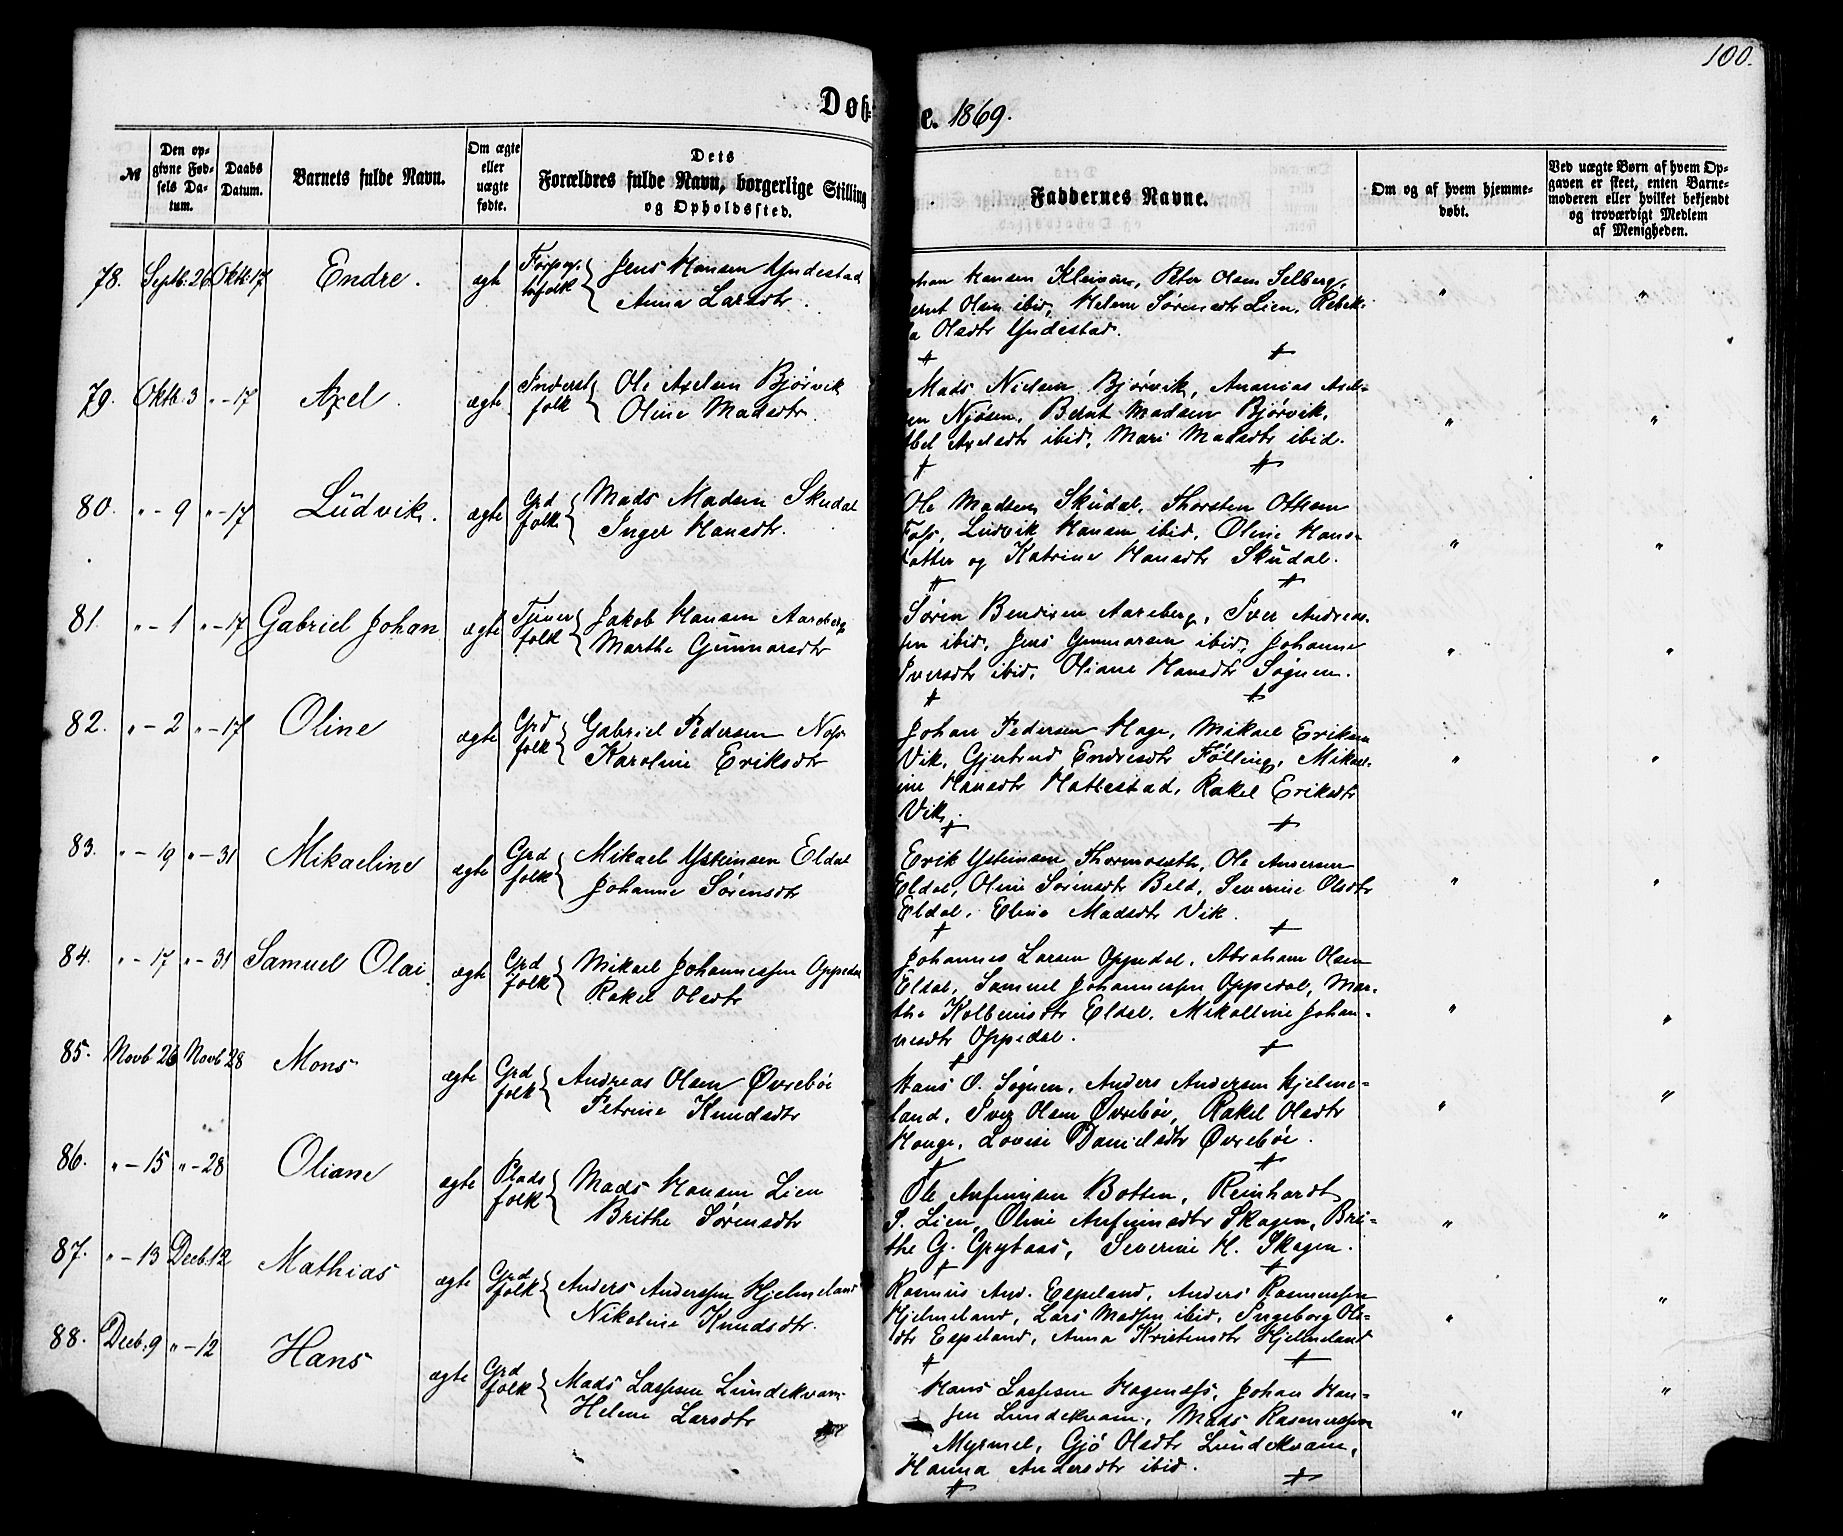 100.
Døb- e. 1869.
№
Den op-
givne Fød-
sels Da-
tum.
Daabs
Datum.
Barnets fulde Navn.
Om ægte
eller
uægte
fødte.
Dets
Forældres fulde Navn, borgerlige Stilling
og Opholdssted.
Faddernes Navne.
Om og af hvem hjemme-
døbt.
Ved uægte Børn af hvem Op-
gaven er skeet, enten Barne-
moderen eller hvilket bekjendt
og troværdigt Medlem
af Menigheden.
78. Septb. 26 Oktb. 17 Endre. ægte folk { Jens Hansen Yndestad
Anna Larsdtr.
Hansen Peter Olsen Selberg,
Olsen ibid, Helene Sørensdtr Lien, Rebek-
a Olsdtr Yndestad.
79. Oktb. 3 " - 17 Axel. ægte Inderst
folk { Ole Axelsen Bjørvik
Oline Madsdtr.
Mads Nielsen Bjørvik, Ananias Axel-
en Njøsen, Bernt Madsen Bjørvik,
Axelsdtr ibid, Mari Madsdtr ibid.
80. " - 9 " - 17 Ludvik. ægte Grd
folk { Mads Madsen Skudal
Inger Hansdtr.
Ole Madsen Skudal, Thorsten Ottesen
Foss, Ludvik Hansen ibid, Oline Hans-
datter og Katrine Hansdtr Skudal.
81. " - 1 " - 17 Gabriel Johan ægte Tjener
folk { Jakob Hansen Aarsberg
Marthe Gunnarsdtr
Søren Bendixen Aarsberg, Iver Andreas-
sen ibid, Jens Gunnarsen ibid, Johanne
Iversdtr ibid, Oliane Hansdtr Sognen.
82. " - 2 " - 17 Oline ægte Grd
folk { Gabriel Pedersen Nos
Karoline Eriksdtr
Johan Pedersen Hage, Mikael Eriksen
Vik, Gjertrud Endresdtr Følling, Mikael-
ine Hansdtr Hatlestad, Rakel Eriksdtr
Vik.
83. " - 19 " - 31 Mikaeline ægte Grd
folk { Mikael Ysteinsen Eldal
Johanne Sørensdtr
Erik Ysteinsen Ole Andersen
Eldal, Oline Sørensdtr Beld, Severine Olsdtr
Eldal, Eline Madsdtr Vik.
84. " - 17 " - 31 Samuel Olai ægte Grd
folk { Mikael Johannessen Oppedal
Rakel Olsdtr
Johannes Larsen Oppedal, Abraham Olsen
Eldal, Samuel Johannessen Oppedal, Mar-
the Kolbeinsdtr Eldal, Mikaline Johan-
nesdtr Oppedal.
85. Novb 26 Novb 28 Mons ægte Grd
folk { Andreas Olsen Øvrebøe
Petrine Knudsdtr
Hans O. Sognen, Anders Andersen Hjelme-
land, Iver Olsen Øvrebøe, Rakel Olsdtr
Hauge, Lovise Danielsdtr Øvrebøe.
86. " - 15 " - 28 Oliane ægte Plads
folk { Mads Hansen Lien
Brithe Sørensdtr
Ole Anfinnsen Botten, Reinhardt
S. Lien, Oline Anfinnsdtr Skagen, Bri-
the G. Grytaas, Severine H. Skagen.
87. " - 13 Decb. 12 Mathias ægte Grd
folk { Anders Anderssen Hjelmeland
Nikoline Knudsdtr.
Rasmus And. Espeland, Anders Rasmussen
Hjelmeland, Lars Madsen ibid, Ingeborg Ols-
dtr Espeland, Anna Kristensdtr Hjelmeland
88. Decb. 9 " - 12 Hans ægte Grd
folk { Mads Lassesen Lundekvam
Helene Larsdtr
Hans Lassesen Hagenæss, Johan Han-
sen Lundekvam, Mads Rasmussen
Myrmel, Gjø Olsdtr Lundekvam,
Hanna Andersdtr ibid.